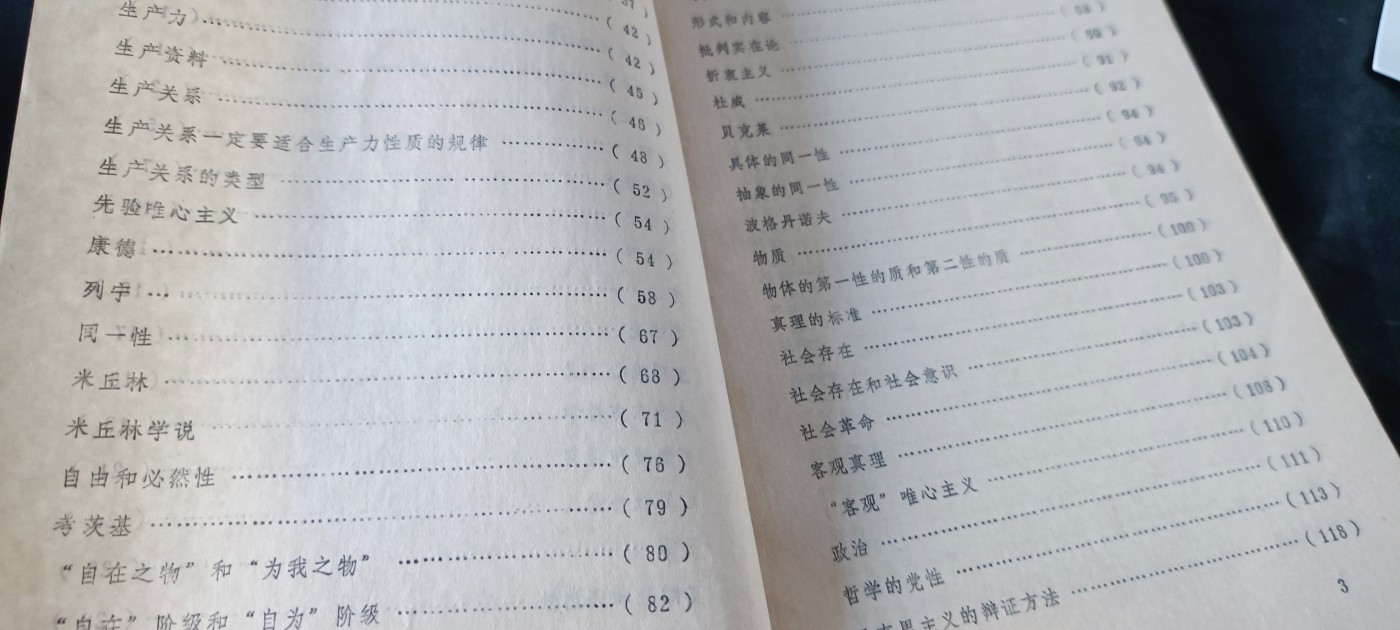 (42)
生产力)……(42)
生产资料……(45)
生产关系……(46)
生产关系一定要适合生产力性质的规律……(48)
生产关系的类型……(52)
先验唯心主义……(54)
康德……(54)
列宁……(58)
同一性……(67)
米丘林……(68)
米丘林学说……(71)
自由和必然性……(76)
考茨基……(79)
“自在之物”和“为我之物”……(80)
“自在”阶级和“自为”阶级……(82)
形式和内容……
批判实在论……
折衷主义……
杜威……(91)
贝克莱……(92)
具体的同一性……(94)
抽象的同一性……(94)
波格丹诺夫……(94)
物质……(95)
物体的第一性的质和第二性的质……(100)
真理的标准……(100)
社会存在……(103)
社会存在和社会意识……(103)
社会革命……(104)
客观真理……(108)
“客观”唯心主义……(110)
政治……(111)
哲学的党性……(113)
主义的辩证方法……(118)
3